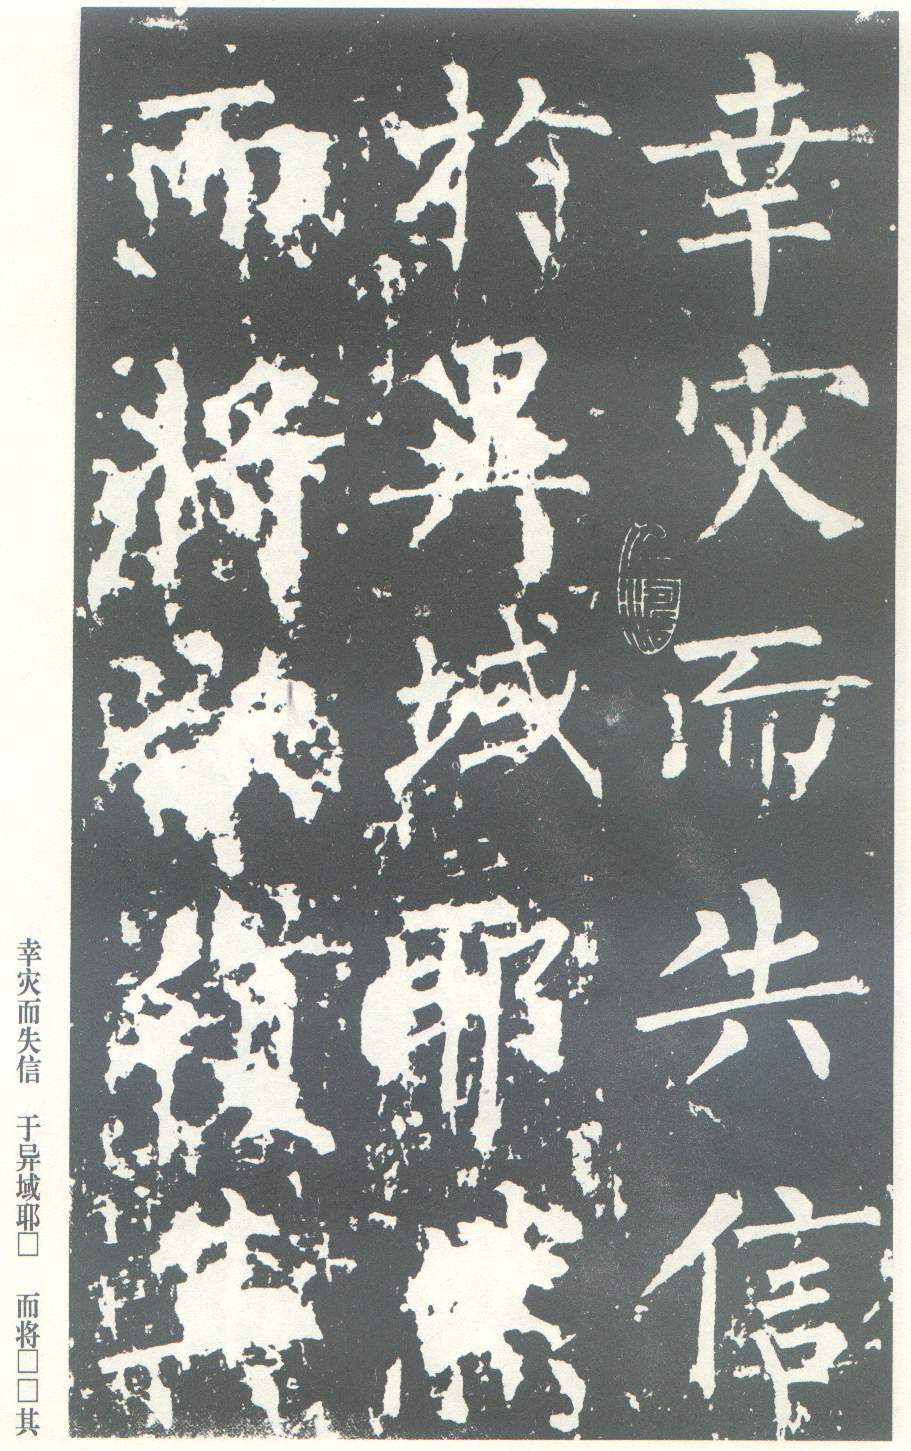 幸灾而失信
於異域耶
而將
幸灾而失信　于异域耶□　而将□□其